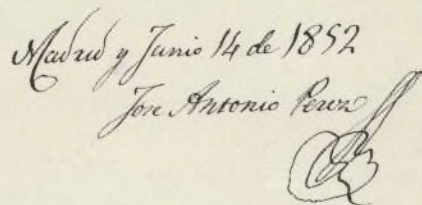 Madrid y Junio 14 de 1852
Jose Antonio Perez